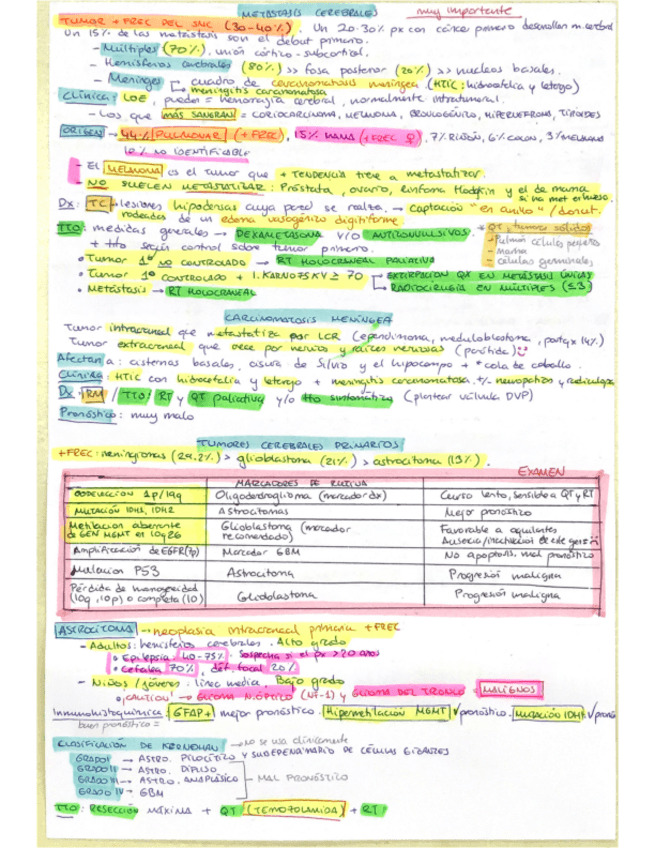 METASTASIS CEREBRALES muy importante
TUMOR + FREC DEL SNC (30-40%). Un 20-30% px con cáncer primero desarrollan m. cerebral
Un 15% de las metástasis son el debut primero.
- Múltiples (70%), unión córtico-subcortical.
- Hemisferios cerebrales (80%) >> fosa posterior (20%) >> núcleos basales.
- Meninges → cuadro de carcinomatosis meníngea (HTIC: hidrocefalia y letargo)
↳ meningitis carcinomatosa
Clínica: LOE, pueden = hemorragia cerebral, normalmente intratumoral.
- Los que MÁS SANGRAN = CORIOCARCINOMA, MELANOMA, BRONCOGÉNICO, HIPERNEFROMA, TIROIDES
ORIGEN → 44% PULMONAR (+FREC), 15% MAMA (+FREC ♀), 7% RIÑÓN, 6% COLON, 3% MELANOMA
10% NO IDENTIFICABLE
- El MELANOMA es el tumor que + TENDENCIA tiene a metastatizar.
- NO SUELEN METASTATIZAR: Próstata, ovario, linfoma Hodgkin y el de mama
si no met a hueso.
Dx: TC → lesiones hipodensas cuya pared se realza. → Captación "en anillo" / donut.
rodeadas de un edema vasogénico digitiforme.
TTO: medidas generales → DEXAMETASONA Y/O ANTICONVULSIVOS.
+ tto según control sobre tumor primero.
+ QT, tumores sólidos
- Pulmón células peqeñas
- mama
- células germinales
• Tumor 1º NO CONTROLADO → RT HOLOCRANEAL PALIATIVA
• Tumor 1º CONTROLADO + I. KARNOFSKY ≥ 70 → EXTIRPACIÓN QX EN METÁSTASIS ÚNICAS
• Metástasis → RT HOLOCRANEAL
RADIOCIRUGÍA EN MÚLTIPLES (≤3)
CARCINOMATOSIS MENÍNGEA
Tumor intracraneal que metastatiza por LCR (ependimoma, meduloblastoma, 14%)
Tumor extracraneal que crece por nervios y raíces nerviosas (parótida)
Afectan a: cisternas basales, cisura de Silvio y el hipocampo + * cola de caballo.
Clínica: HTIC con hidrocefalia y letargo + meningitis carcinomatosa. +/- neuropatías y
Dx: RM / TTO: RT y QT paliativa y/o tto sintomático (plantear válvula DVP)
Pronóstico: muy malo
TUMORES CEREBRALES PRIMARIOS
+FREC: meningiomas (29.2%) > glioblastoma (21%) > astrocitoma (13%).
EXAMEN
MARCADORES DE RUTINA
CODELECCION 1p/19q Oligodendroglioma (marcador dx) Curso lento, sensible a QT y RT
MUTACIÓN IDH1, IDH2 Astrocitomas Mejor pronóstico
Metilación aberrante de GEN MGMT en 10q26 Glioblastoma (marcador recomendado) Favorable a alquilantes Ausencia/inactividad de este gen
Amplificación de EGFR (7p) Marcador GBM No apoptosis, mal pronóstico
Mutación P53 Astrocitoma Progresión maligna
Pérdida de (10q, 10p) o completa (10) Glioblastoma Progresión maligna
ASTROCITOMA → neoplasia intracraneal primaria +FREC
- Adultos: hemisferios cerebrales. Alto grado
• Epilepsia 40-75% Sospecha si el px >20 años
• Cefalea 70%, déf. focal 20%
- Niños / jóvenes: línea media. Bajo grado
• ¡CAUTION! → GLIOMA N. ÓPTICO (NF-1) y GLIOMA DEL TRONCO → MALIGNOS
Inmunohistoquímica: GFAP+ mejor pronóstico. Hipermetilación MGMT ✓pronóstico. MUTACIÓN IDH1 ✓pronó
buen pronóstico =
CLASIFICACIÓN DE KERNOHAN → no se usa clínicamente
GRADO I → ASTRO. PILOCÍTICO Y SUBEPENDIMARIO DE CÉLULAS GIGANTES
GRADO II → ASTRO. DIFUSO
GRADO III → ASTRO. ANAPLÁSICO - MAL PRONÓSTICO
GRADO IV → GBM
TTO: RESECCIÓN MÁXIMA + QT (TEMOZOLAMIDA) + RT